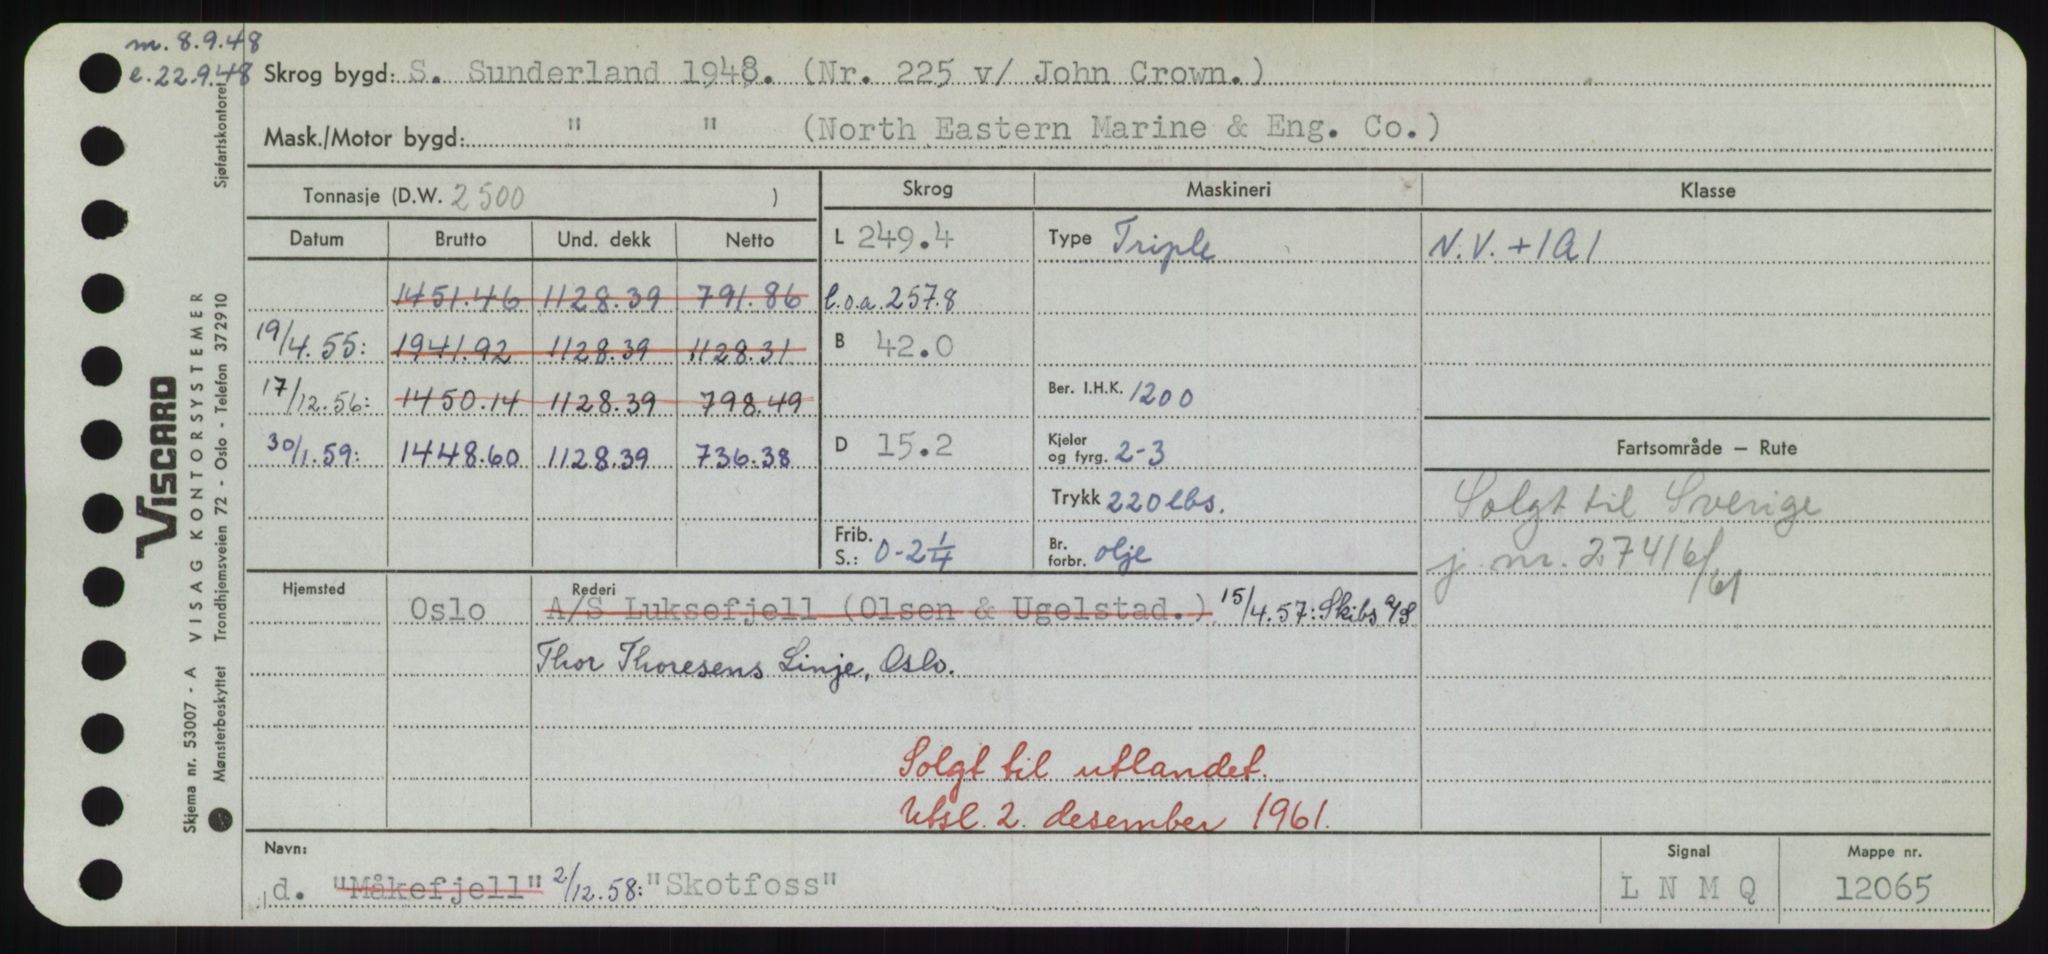 m. 8.9.48
e. 22.9.48
Skrog bygd: S. Sunderland 1948. (Nr. 225 v/ John Crown.)
Mask./Motor bygd: " " (North Eastern Marine & Eng. Co.)
Tonnasje (D.W. 2500 ) Skrog Maskineri Klasse
Datum Brutto Und. dekk Netto L 249.4 Type Triple N.V. +1A1
1451.46 1128.39 791.86 l.o.a. 257.8
19/4.55: 1941.92 1128.39 1128.31 B 42.0
17/12.56: 1450.14 1128.39 798.49 Ber. I.H.K. 1200
30/1.59: 1448.60 1128.39 736.38 D 15.2 Kjeler og fyrg. 2-3 Fartsområde — Rute
Trykk 220 lbs. Solgt til Sverige
Frib. S.: 0-2 1/4 Br. forbr. olje j. nr. 27416/61
Hjemsted Rederi
Oslo A/S Luksefjell (Olsen & Ugelstad.) 15/4.57: Skibs A/S
Thor Thoresens Linje, Oslo.
Solgt til utlandet.
Utsl. 2. desember 1961.
Navn: Signal Mappe nr.
d. "Måkefjell" 2/12.58: "Skotfoss" L N M Q 12065
Sjøfartskontoret
VISCARD
VISAG KONTORSYSTEMER
Trondhjemsveien 72 - Oslo - Telefon 372910
Skjema nr. 53007 - A
Mønsterbeskyttet